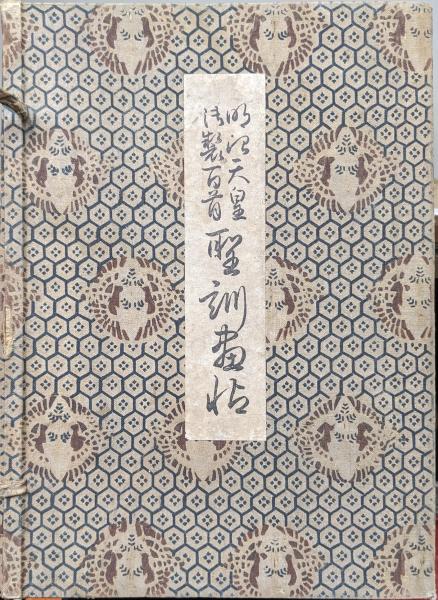 明治天皇
御製百首
聖訓画帖